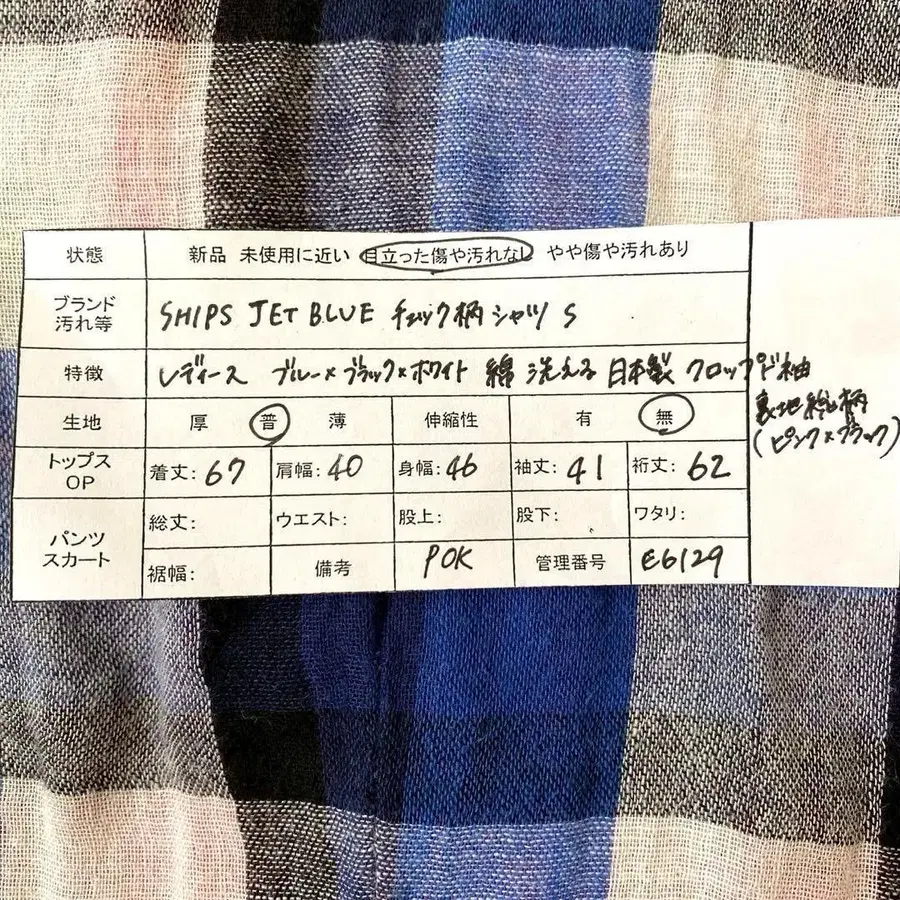 状態 新品 未使用に近い 目立った傷や汚れなし やや傷や汚れあり
ブランド
汚れ等 SHIPS JET BLUE チェック柄シャツ S
特徴 レディース ブルー×ブラック×ホワイト 綿 洗える 日本製 クロップド袖
裏地総柄
(ピンク×ブラック)
生地 厚 普 薄 伸縮性 有 無
トップス
OP 着丈:67 肩幅:40 身幅:46 袖丈:41 裄丈:62
パンツ
スカート 総丈: ウエスト: 股上: 股下: ワタリ:
裾幅: 備考 POK 管理番号 E6129